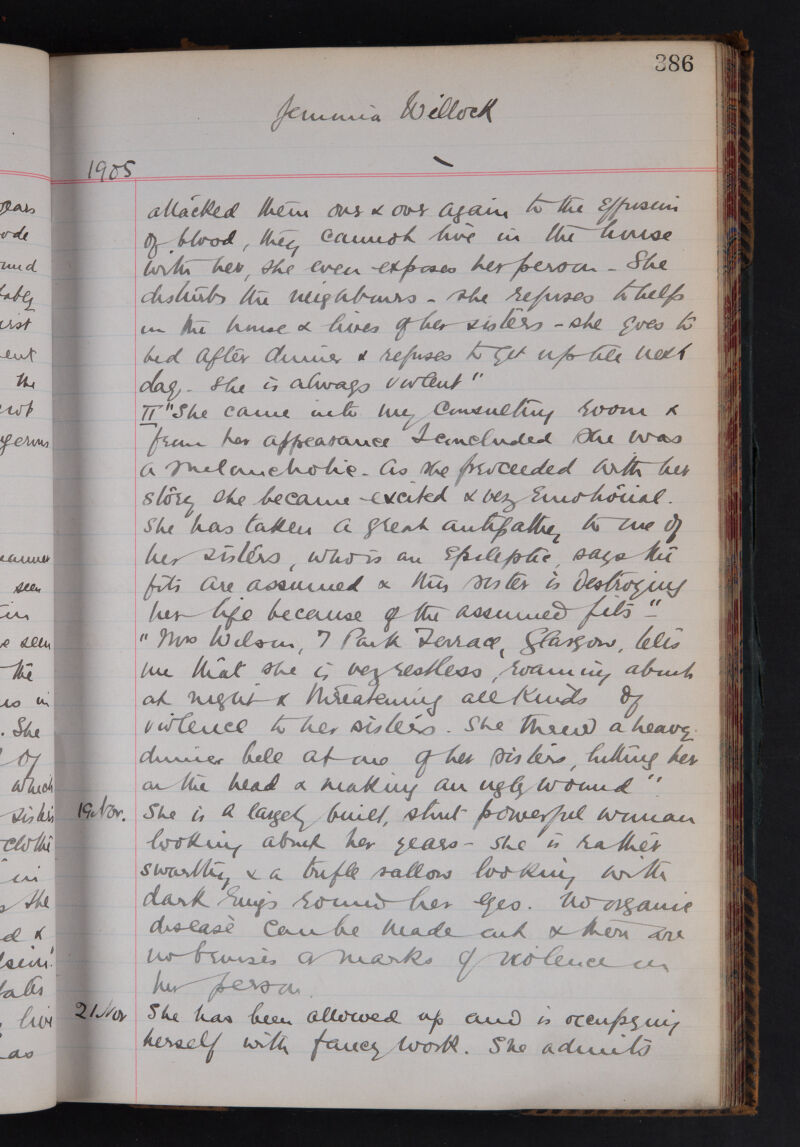 386
Jemima Willock
1905
attacked them over & over again to the effusion
of blood, they cannot live in the house
with her, she even exposes her person - She
disturbs the neighbours - she refuses to help
in the house & lives of her sisters - she goes to
bed after dinner & refuses to get up till next
day - She is always violent"
II "She came into my consulting room &
from her appearance I concluded she was
a melancholic - as she proceeded with her
story she became excited & very emotional.
She has taken a great antipathy to one of
her sisters, who is an epileptic, says the
fits are assumed & this sister is destroying
her life because of the assumed fits" -
"Mrs Wilson, 7 Park Terrace, Glasgow, tells
me that she is very restless, roaming about
at night & threatening all kinds of
violence to her sisters. She threw a heavy
dinner bell at one of her sisters, hitting her
on the head & making an ugly wound"
19 Nov. She is a largely built, stout powerful woman
looking about her years - she is rather
swarthy & a trifle sallow looking with
dark rings round her eyes. No organic
disease can be made out & there are
no bruises or marks of violence on
her person.
21 Nov She has been allowed up and is occupying
herself with fancy work. She admits